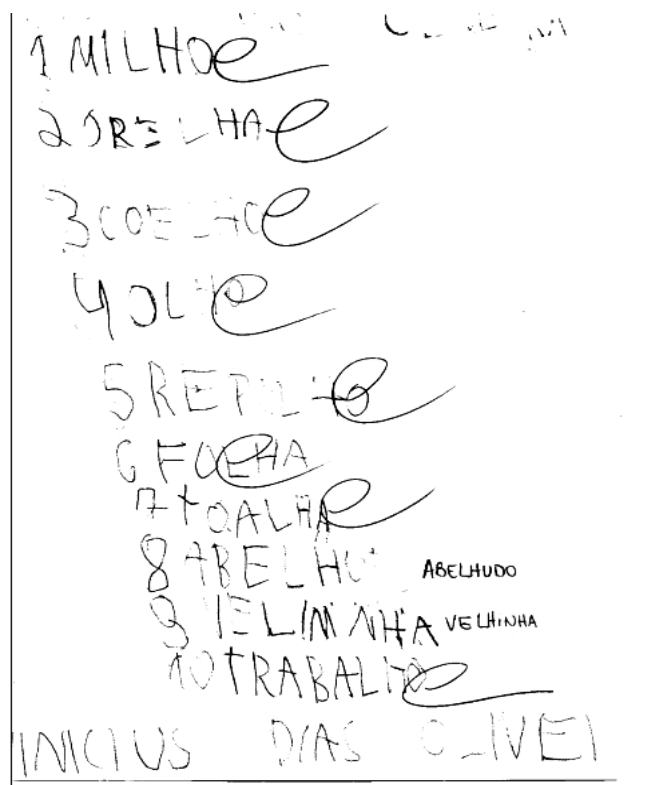 1 MILHO
2 ORELHA
3 COELHO
4 OLHO
5 REPOLHO
6 FOLHA
7 TOALHA
8 ABELHU ABELHUDO
9 VELHINHA
10 TRABALHO
INICIUS DIAS OLIVEI